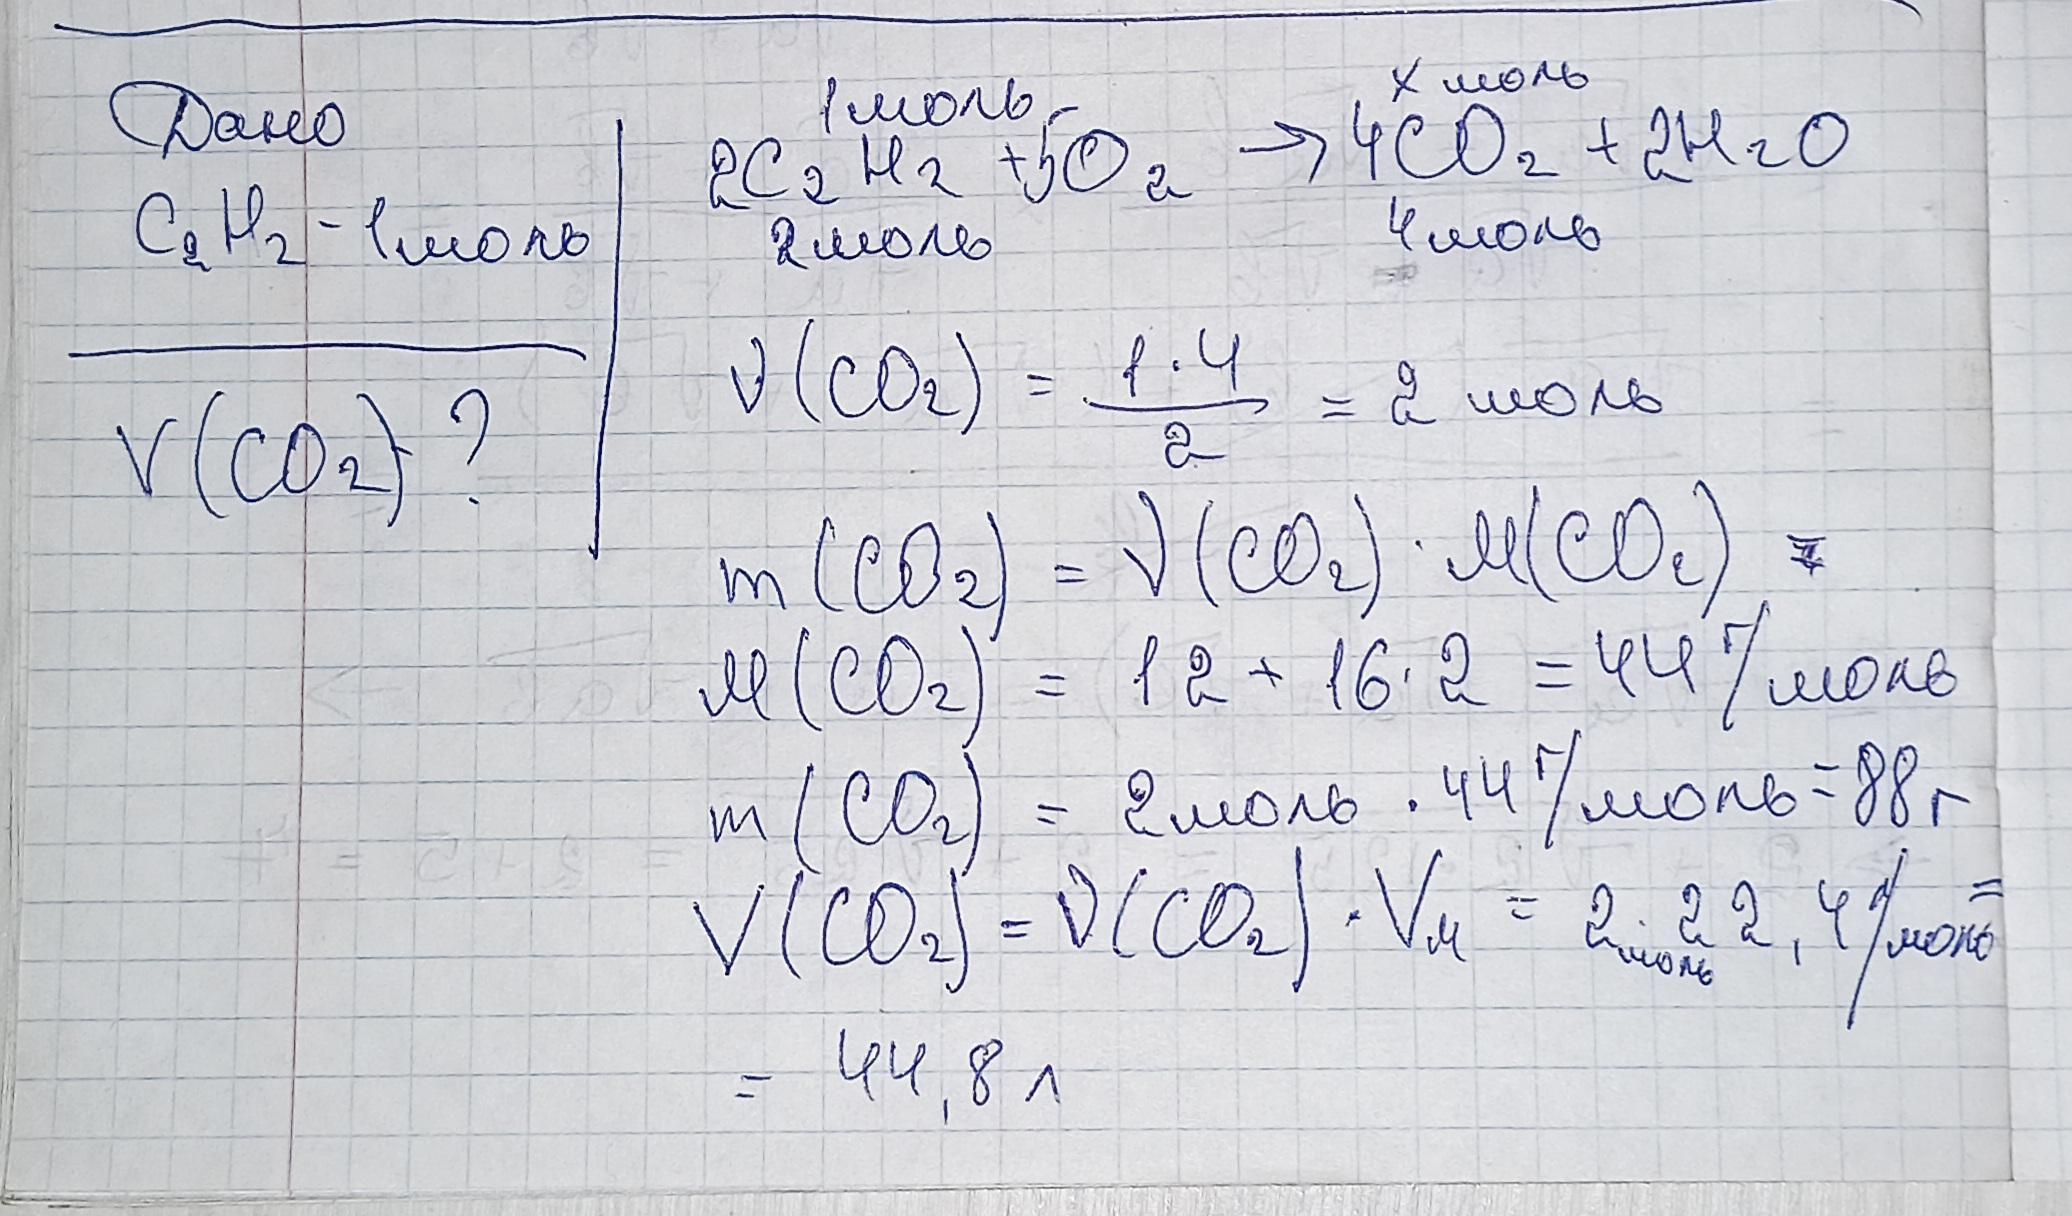 Дано
C₂H₂ - 1 моль
V(CO₂) - ?
1 моль x моль
2C₂H₂ + 5O₂ → 4CO₂ + 2H₂O
2 моль 4 моль
ν(CO₂) = 1·4/2 = 2 моль
m(CO₂) = ν(CO₂) · M(CO₂) =
M(CO₂) = 12 + 16·2 = 44 г/моль
m(CO₂) = 2 моль · 44 г/моль = 88 г
V(CO₂) = ν(CO₂) · Vм = 2 моль · 22,4 л/моль =
= 44,8 л